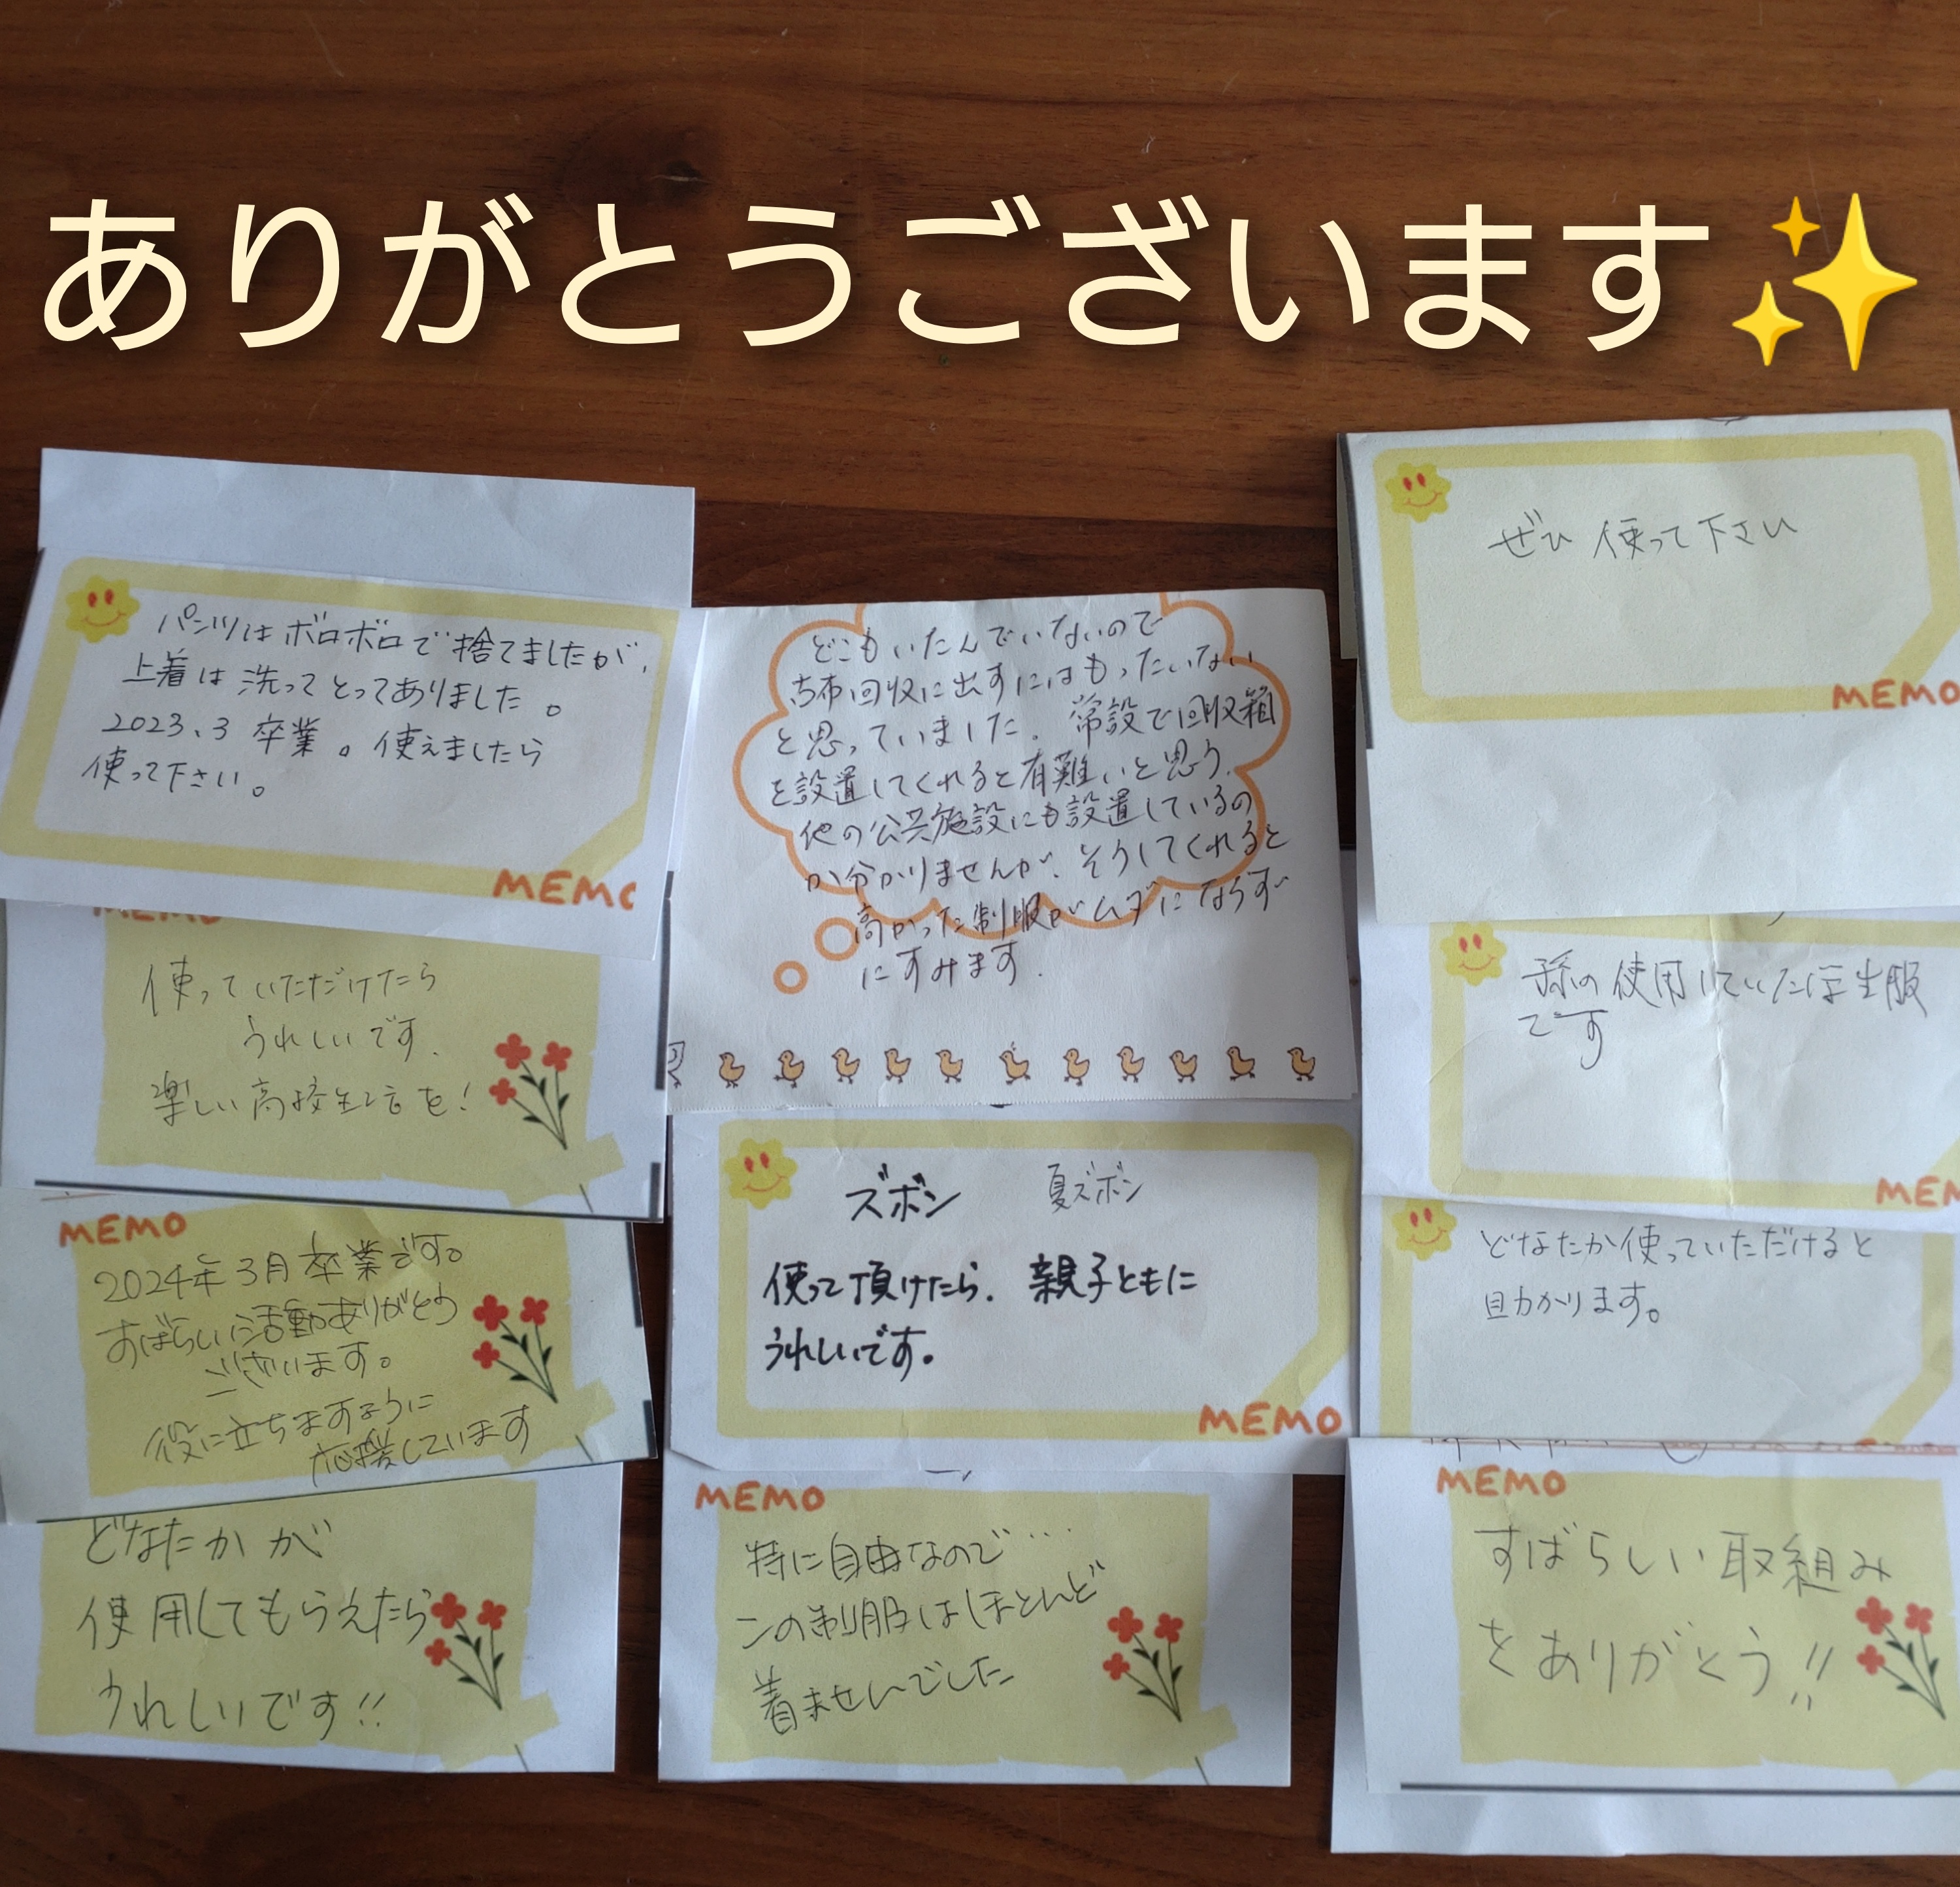 ありがとうございます✨
パンツはボロボロで捨てましたが、
上着は洗ってとってありました。
2023.3 卒業。使えましたら
使って下さい。
MEMO
使っていただけたら
うれしいです.
楽しい高校生活を!
MEMO
2024年3月卒業です。
すばらしい活動ありがとう
ございます。
役に立ちますように
応援しています
どなたかが
使用してもらえたら
うれしいです!!
どこもいたんでいないので
古布回収に出すにはもったいない
と思っていました. 常設で回収箱
を設置してくれると有難いと思う.
他の公共施設にも設置しているの
か分かりませんが、そうしてくれると
高かった制服がムダにならず
にすみます.
ズボン 夏ズボン
使って頂けたら. 親子ともに
うれしいです。
MEMO
MEMO
特に自由なので…
この制服はほとんど
着ませんでした
ぜひ使って下さい
MEMO
孫の使用していた学生服
です
MEM
どなたか使っていただけると
助かります。
MEMO
すばらしい取組み
をありがとう!!